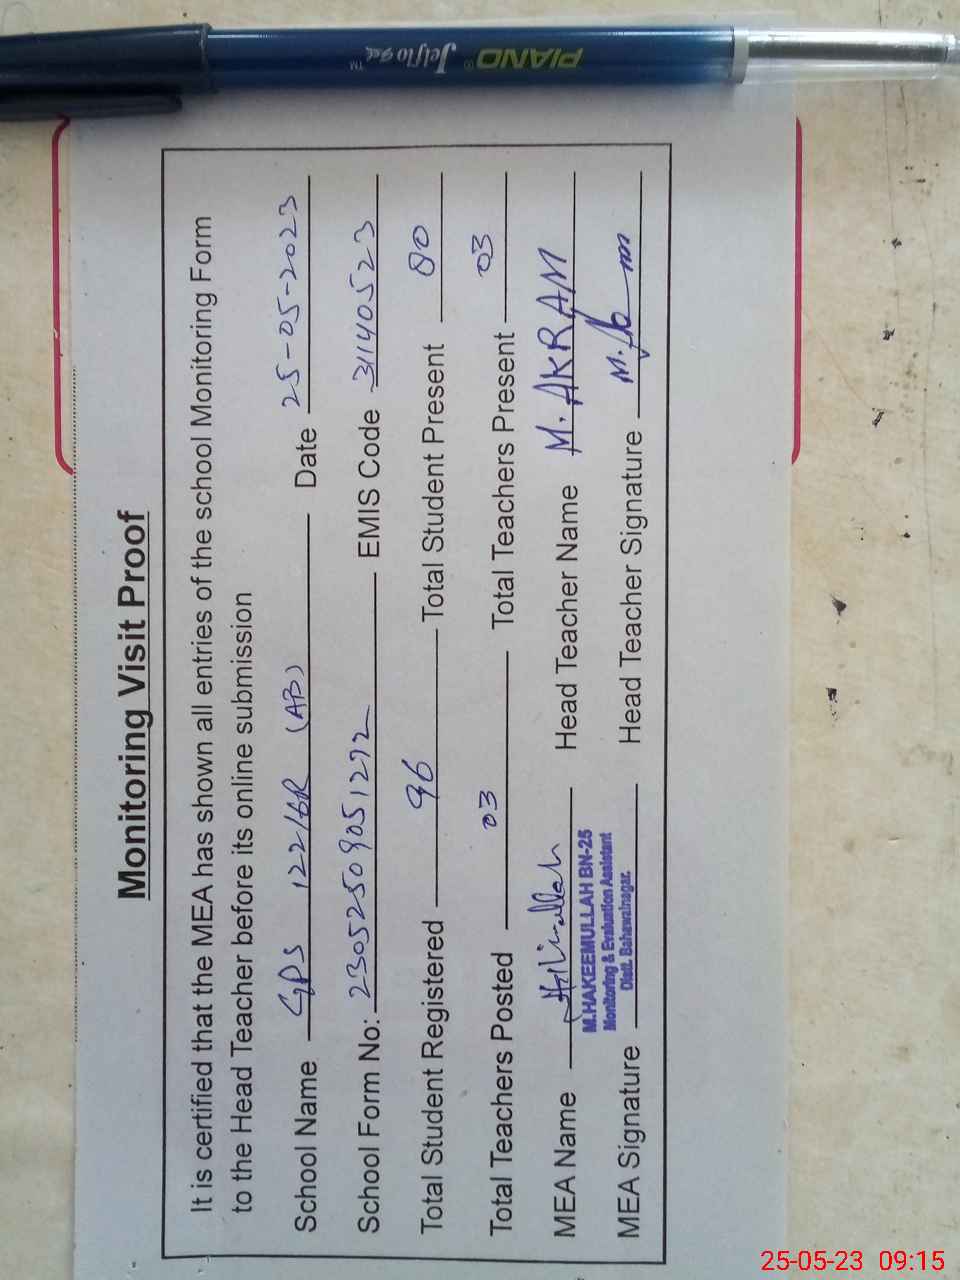 PIANO® Jelflo gel™
Monitoring Visit Proof
It is certified that the MEA has shown all entries of the school Monitoring Form
to the Head Teacher before its online submission
School Name GPS 122/6R (AB) Date 25-05-2023
School Form No: 23052509051272 EMIS Code 31140523
Total Student Registered 96 Total Student Present 80
Total Teachers Posted 03 Total Teachers Present 03
MEA Name Head Teacher Name M. AKRAM
M.HAKEEMULLAH BN-25
Monitoring & Evaluation Assistant
Distt. Bahawalnagar.
MEA Signature Head Teacher Signature
25-05-23 09:15